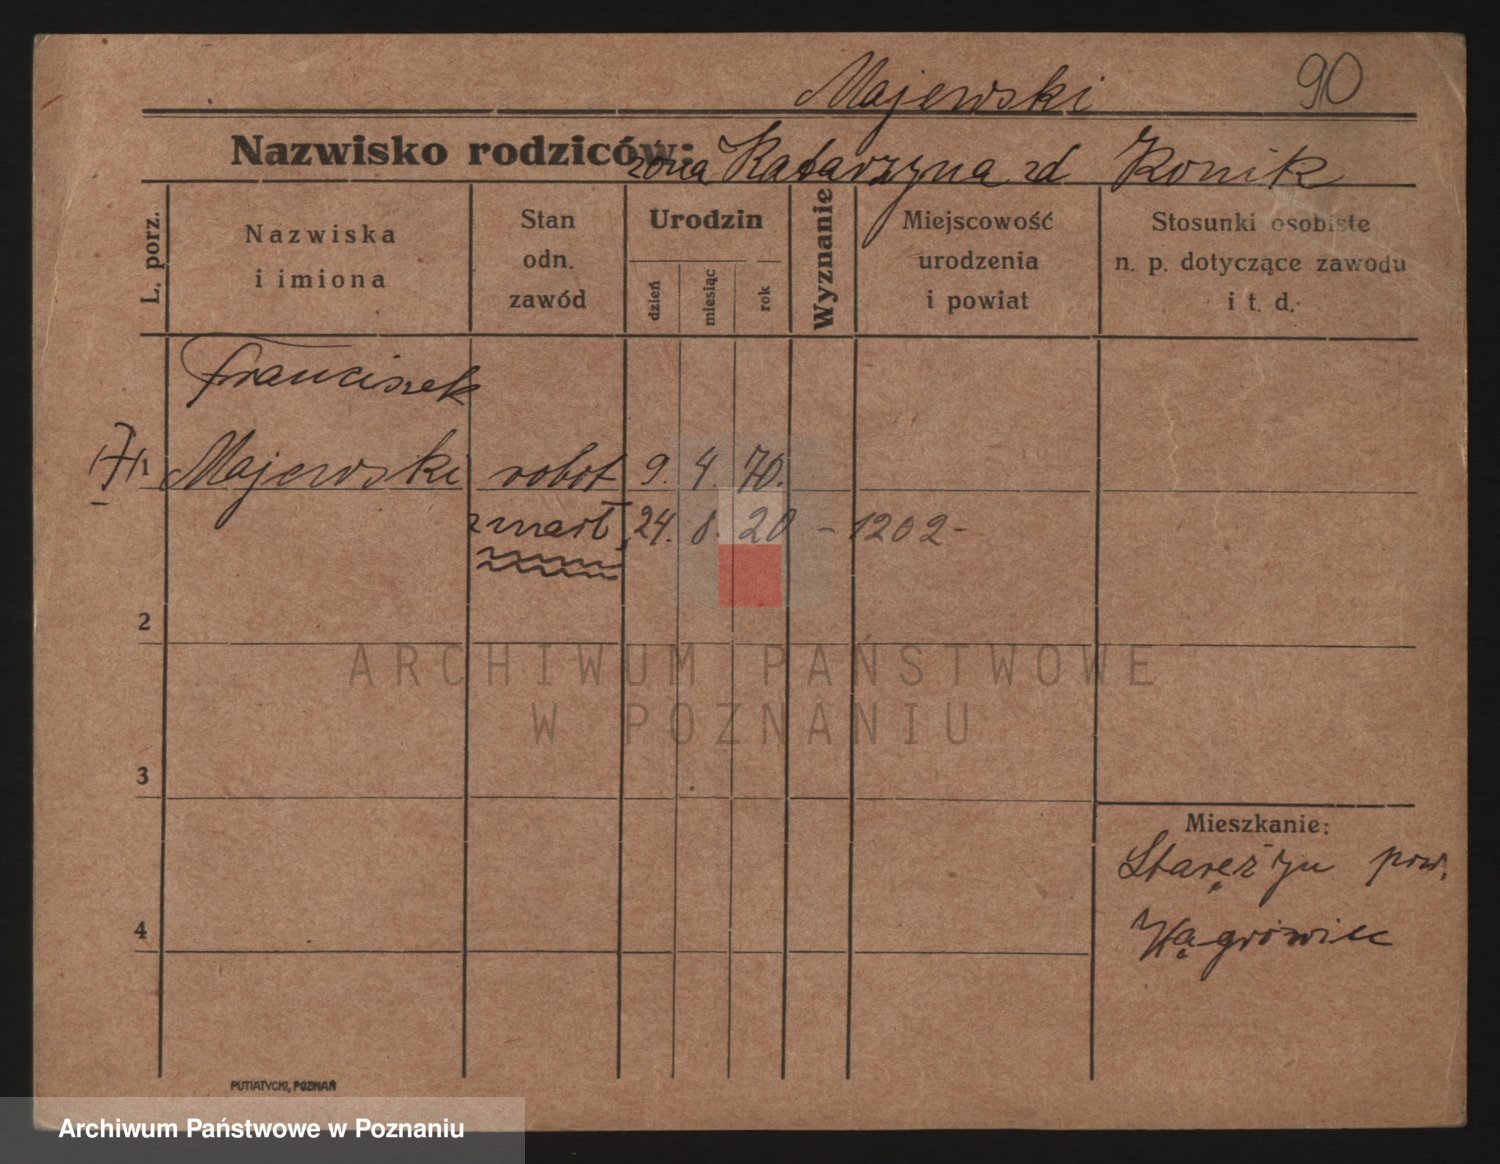 Majewski 90
Nazwisko rodziców: żona Katarzyna zd Konik
L. porz.
Nazwiska
i imiona
Stan
odn.
zawód
Urodzin
dzień
miesiąc
rok
Wyznanie
Miejscowość
urodzenia
i powiat
Stosunki osobiste
n. p. dotyczące zawodu
i t. d.
Franciszek
1 Majewski robot 9. 4. 70.
zmarł 24. 8. 20 - 1202 -
2
ARCHIWUM PAŃSTWOWE
W POZNANIU
3
Mieszkanie:
Starężyn pow.
4
Wągrówiec
PUTIATYCKI, POZNAŃ
Archiwum Państwowe w Poznaniu